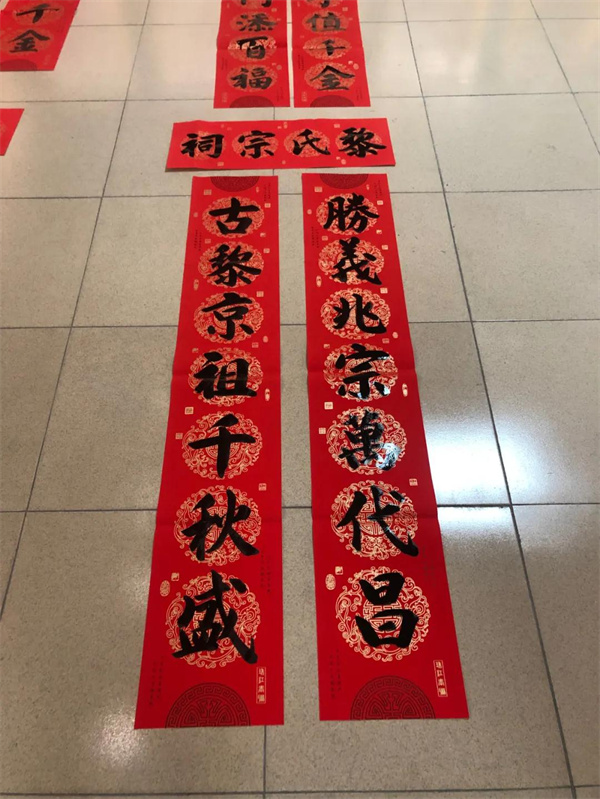 值千金
添百福
千金
黎氏宗祠
勝義兆宗萬代昌
古黎京祖千秋盛